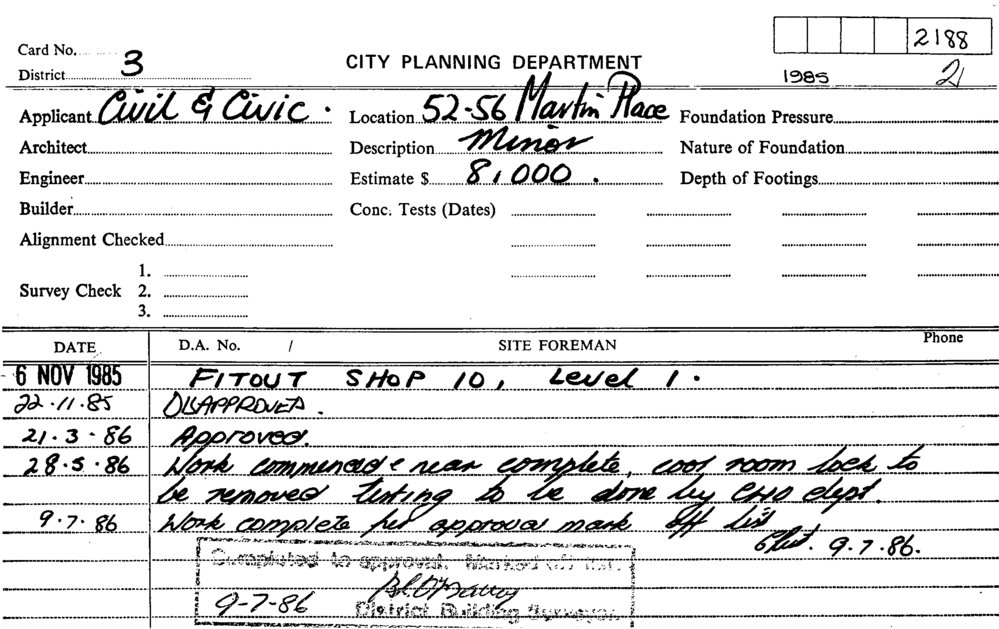 Card No.
2188
District 3
CITY PLANNING DEPARTMENT
1985
2
Applicant Civil & Civic.
Location 52-56 Martin Place
Foundation Pressure
Architect
Description Minor
Nature of Foundation
Engineer
Estimate $ 8,000.
Depth of Footings
Builder
Conc. Tests (Dates)
Alignment Checked
Survey Check
1.
2.
3.
DATE
D.A. No. /
SITE FOREMAN
Phone
6 NOV 1985 FITOUT SHOP 10, Level 1.
22.11.85 DISAPPROVED.
21.3.86 Approved.
28.5.86 Work commenced & near complete, cool room lock to
be removed testing to be done by CHO dept.
9.7.86 Work complete per approval mark off list
9.7.86.
Completed to approval. Marked off list.
9-7-86
District Building Surveyor